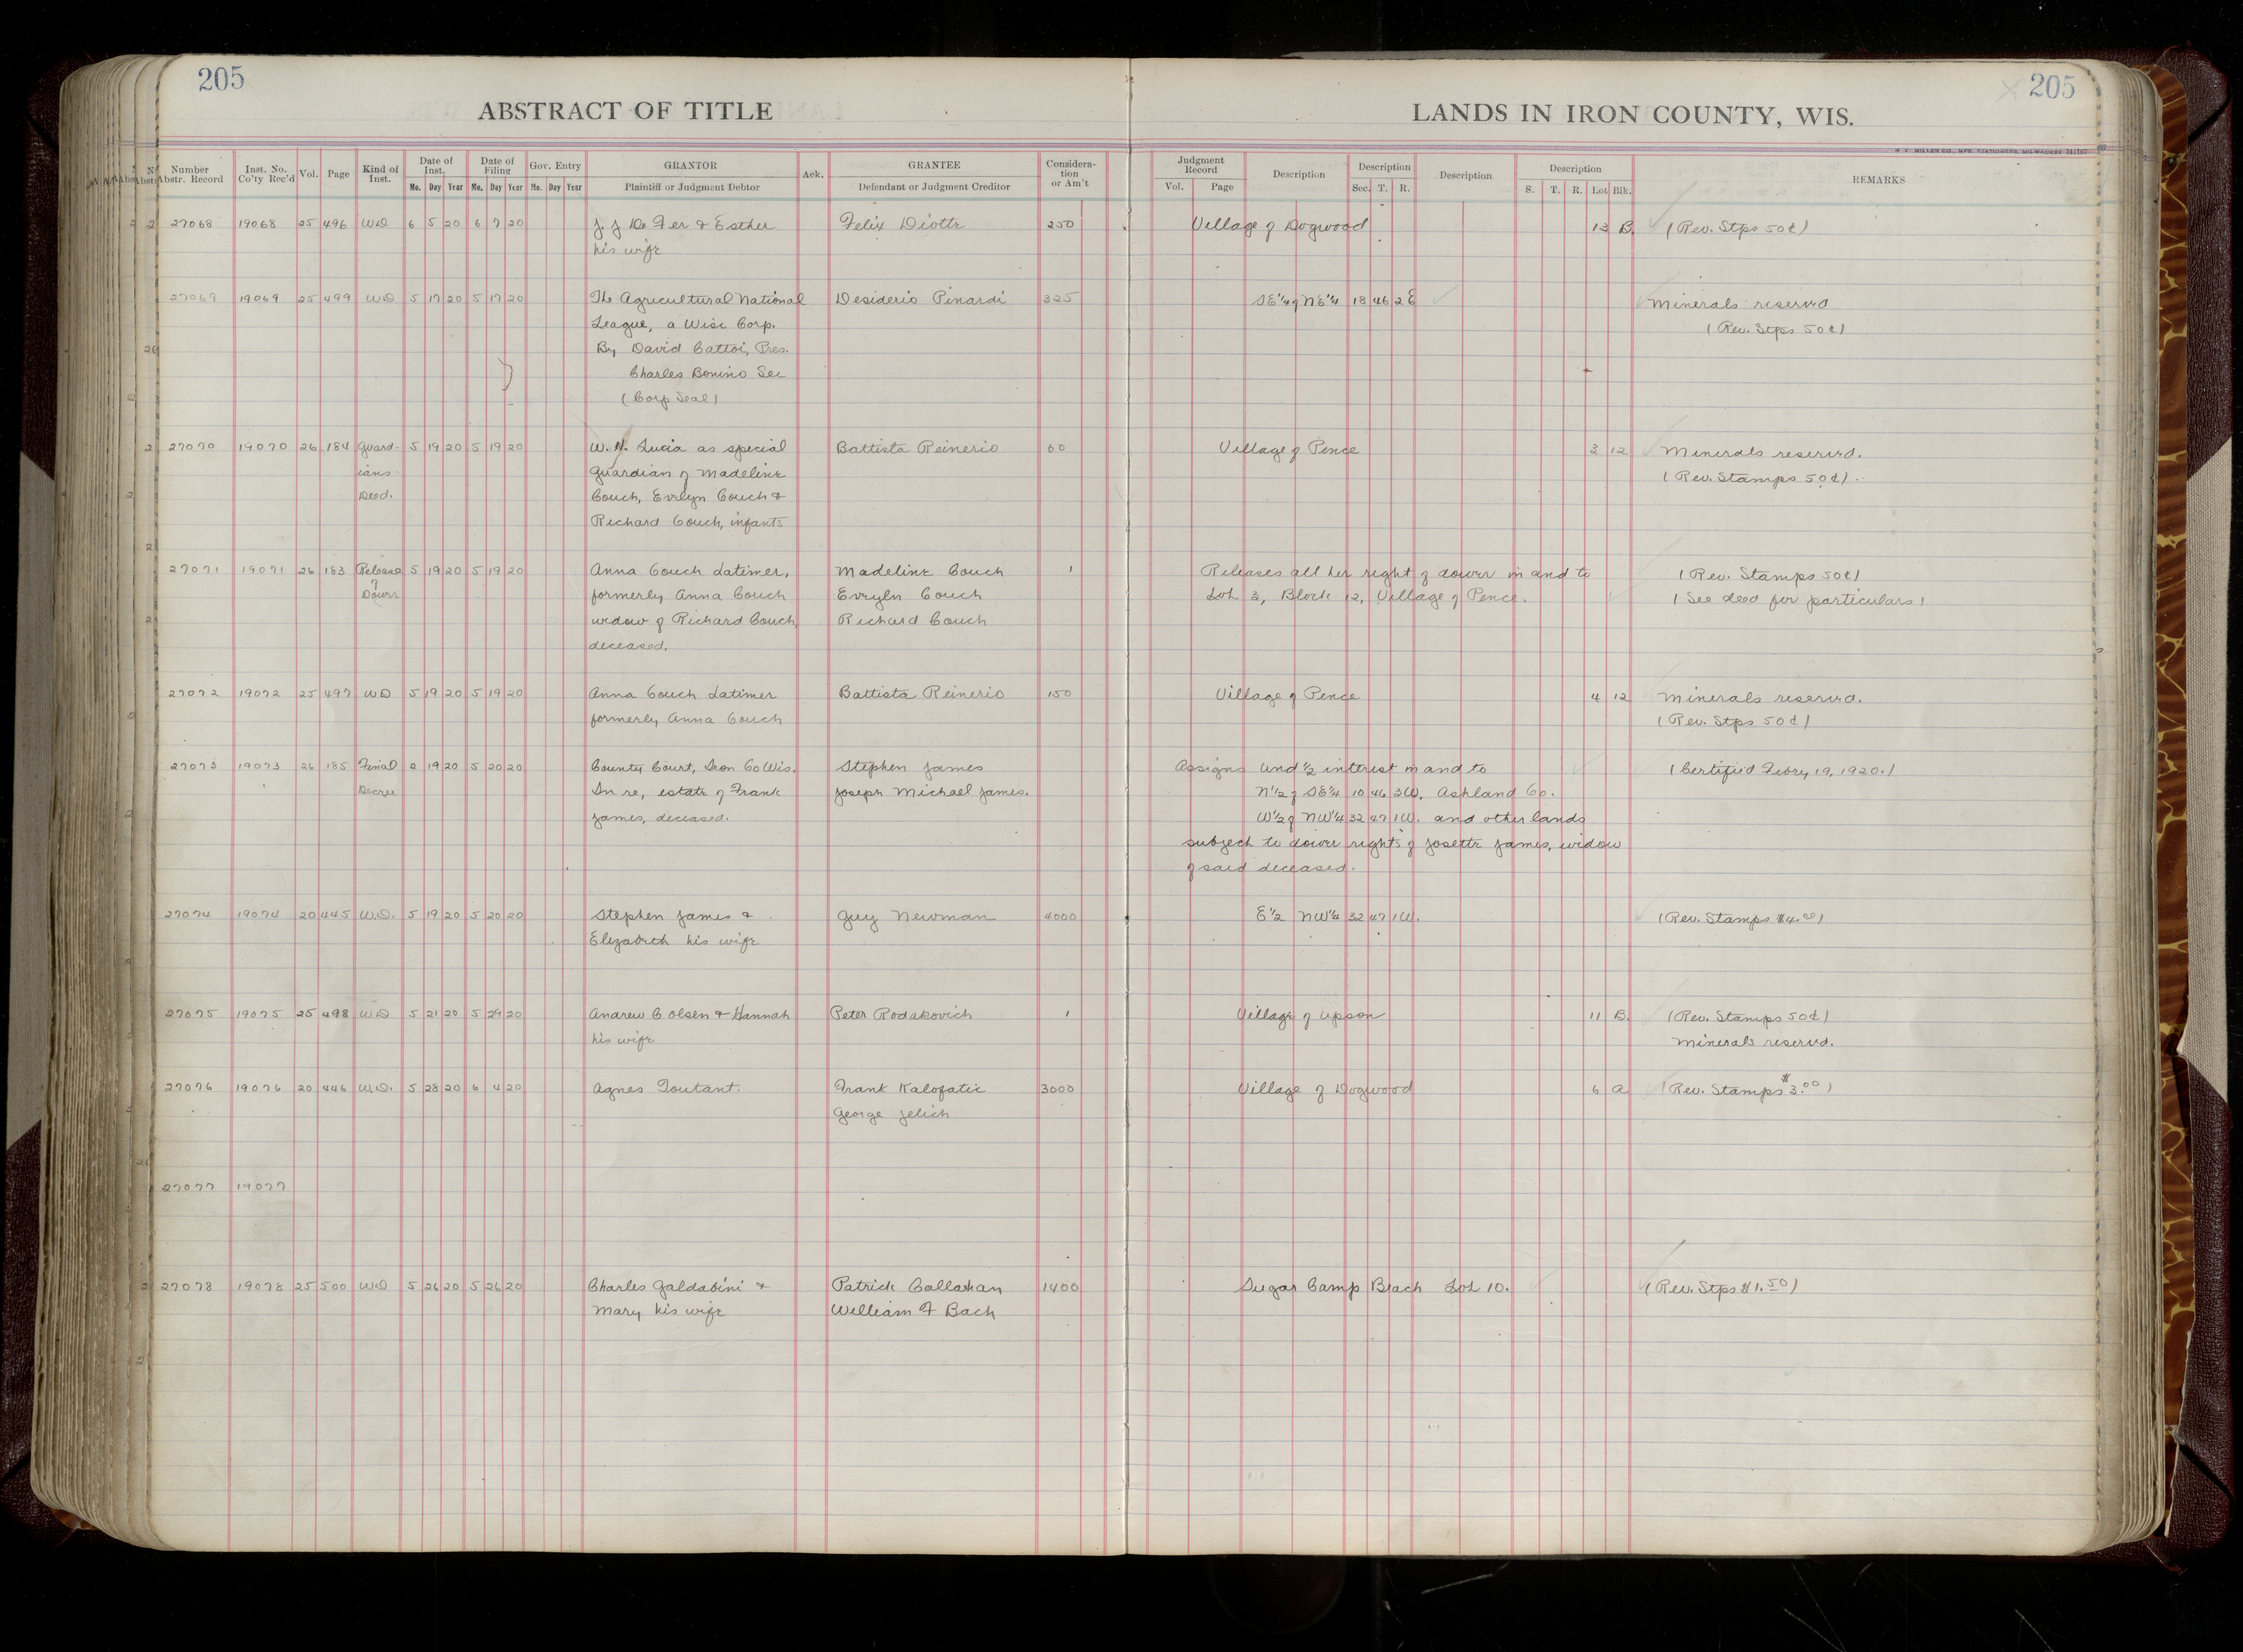 205
205
ABSTRACT OF TITLE
LANDS IN IRON COUNTY, WIS.
H. C. MILLER CO., MFG. STATIONERS, MILWAUKEE
Number Abstr. Record Inst. No. Co'ty Rec'd Vol. Page Kind of Inst. Date of Inst. Date of Filing Gov. Entry GRANTOR Ack. GRANTEE Considera-tion or Am't Judgment Record Description Description Description Description REMARKS
Mo. Day Year Mo. Day Year Mo. Day Year Plaintiff or Judgment Debtor Defendant or Judgment Creditor Vol. Page Sec. T. R. S. T. R. Lot Blk.
27068 19068 25 496 WD 6 5 20 6 7 20 J. J De Fer & Esther Felix Diotte 250 Village of Dogwood 13 B. (Rev. Stps 50¢)
his wife
27069 19069 25 499 WD 5 17 20 5 17 20 The Agricultural National Desiderio Pinardi 325 SE¼ of NE¼ 18 46 2E Minerals reserved
League, a Wisc Corp. (Rev. Stps 50¢)
By David Cattoi, Pres.
Charles Bonino Sec
(Corp Seal)
27070 19070 26 184 Guard- 5 19 20 5 19 20 W. H. Lucia as special Battista Reinerio 60 Village of Pence 3 12 Minerals reserved.
ians Guardian of Madeline (Rev. Stamps 50¢).
Deed. Couch, Evelyn Couch &
Richard Couch, infants
27071 19071 26 183 Release 5 19 20 5 19 20 Anna Couch Latimer, Madeline Couch 1 Releases all her right of dower in and to (Rev. Stamps 50¢)
of Dower formerly Anna Couch Evryln Couch Lot 3, Block 12, Village of Pence. (See deed for particulars)
widow of Richard Couch, Richard Couch
deceased.
27072 19072 25 497 WD 5 19 20 5 19 20 Anna Couch Latimer Battista Reinerio 150 Village of Pence 4 12 Minerals reserved.
formerly Anna Couch (Rev. Stps 50¢)
27073 19073 26 185 Final 2 19 20 5 20 20 County Court, Iron Co Wis. Stephen James Assigns Und ½ interest in and to (Certified Febry 19, 1920.)
Decree In re, estate of Frank Joseph Michael James. N½ of SE¼ 10 46 3W, Ashland Co.
James, deceased. W½ of NW¼ 32 47 1W. and other lands
subject to dower rights of Josette James, widow
of said deceased.
27074 19074 20 445 W.D. 5 19 20 5 20 20 Stephen James & Guy Newman 4000 E½ NW¼ 32 47 1W. (Rev. Stamps $4.00)
Elizabeth his wife
27075 19075 25 498 WD 5 21 20 5 29 20 Andrew C Olsen & Hannah Peter Rodakovich 1 Village of Upson 11 B. (Rev. Stamps 50¢)
his wife Minerals reserved.
27076 19076 20 446 W.D. 5 28 20 6 4 20 Agnes Toutant. Frank Kalofatic 3000 Village of Dogwood 6 A (Rev. Stamps $3.00)
George Jelich
27077 19077
27078 19078 25 500 WD 5 26 20 5 26 20 Charles Galdabini & Patrick Callahan 1400 Sugar Camp Beach Lot 10. (Rev. Stps $1.50)
Mary his wife William F Bach